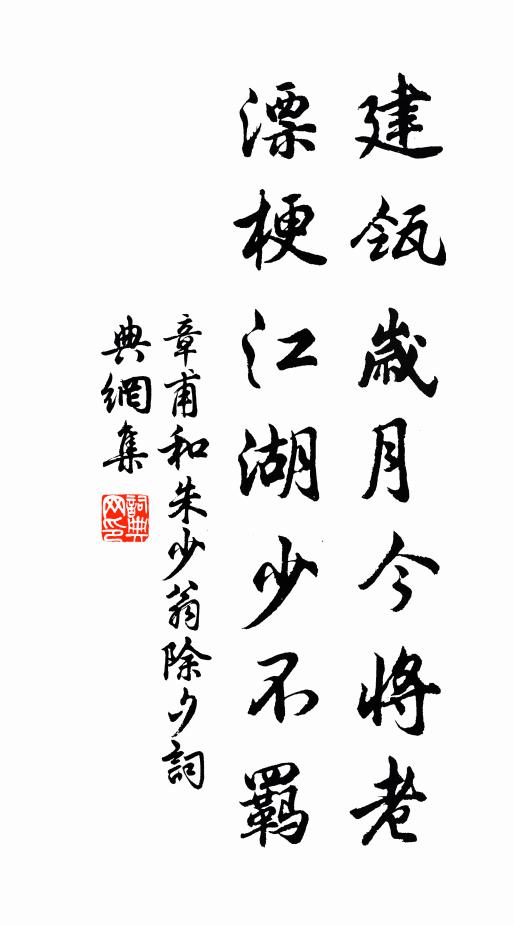 建瓴歲月今將老
漂梗江湖少不羈
章甫和朱少翁除夕詞
典網集
詞典網印